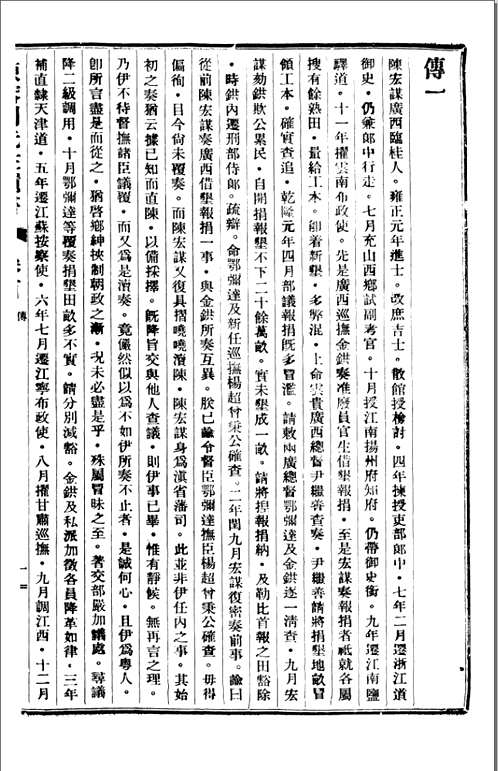 傳一
陳宏謀廣西臨桂人。雍正元年進士。改庶吉士。散館授檢討。四年揀授吏部郎中。七年二月遷浙江道
御史。仍兼郎中行走。七月充山西鄉試副考官。十月授江南揚州府知府。仍帶御史銜。九年遷江南鹽
驛道。十一年擢雲南布政使。先是廣西巡撫金鉷奏准廢員官生借墾報捐。至是宏謀奏報捐者祗就各屬
搜有餘熟田。量給工本。卽着新墾。多弊混。上命雲貴廣西總督尹繼善查奏。尹繼善請將捐墾地畝冒
領工本。確實查追。乾隆元年四月部議報捐旣多冒濫。請敕兩廣總督鄂彌達及金鉷逐一清查。九月宏
謀劾鉷欺公累民。自開捐報墾不下二十餘萬畝。實未墾成一畝。請將捏報捐納。及勒比首報之田豁除
。時鉷內遷刑部侍郎。疏辯。命鄂彌達及新任巡撫楊超曾秉公確查。二年閏九月宏謀復密奏前事。諭曰
從前陳宏謀奏廣西借墾報捐一事。與金鉷所奏互異。朕已諭令督臣鄂彌達撫臣楊超曾秉公確查。毋得
偏徇。目今尙未覆奏。而陳宏謀又復具摺曉曉瀆陳。陳宏謀身爲滇省藩司。此並非伊任內之事。其始
初之奏猶云據已知而直陳。以備採擇。旣降旨交與他人查議。則伊事已畢。惟有靜候。無再言之理。
乃伊不待督撫諸臣議覆。而又爲是瀆奏。竟儼然似以爲不如伊所奏不止者。是誠何心。且伊爲粵人。
卽所言盡是而從之。猶啓鄉紳挾制朝政之漸。况未必盡是乎。殊屬冒昧之至。著交部嚴加議處。尋議
降二級調用。十月鄂彌達等覆奏捐墾田畝多不實。請分別減豁。金鉷及私派加徵各員降革如律。三年
補直隸天津道。五年遷江蘇按察使。六年七月遷江寧布政使。八月擢甘肅巡撫。九月調江西。十二月
傳
一